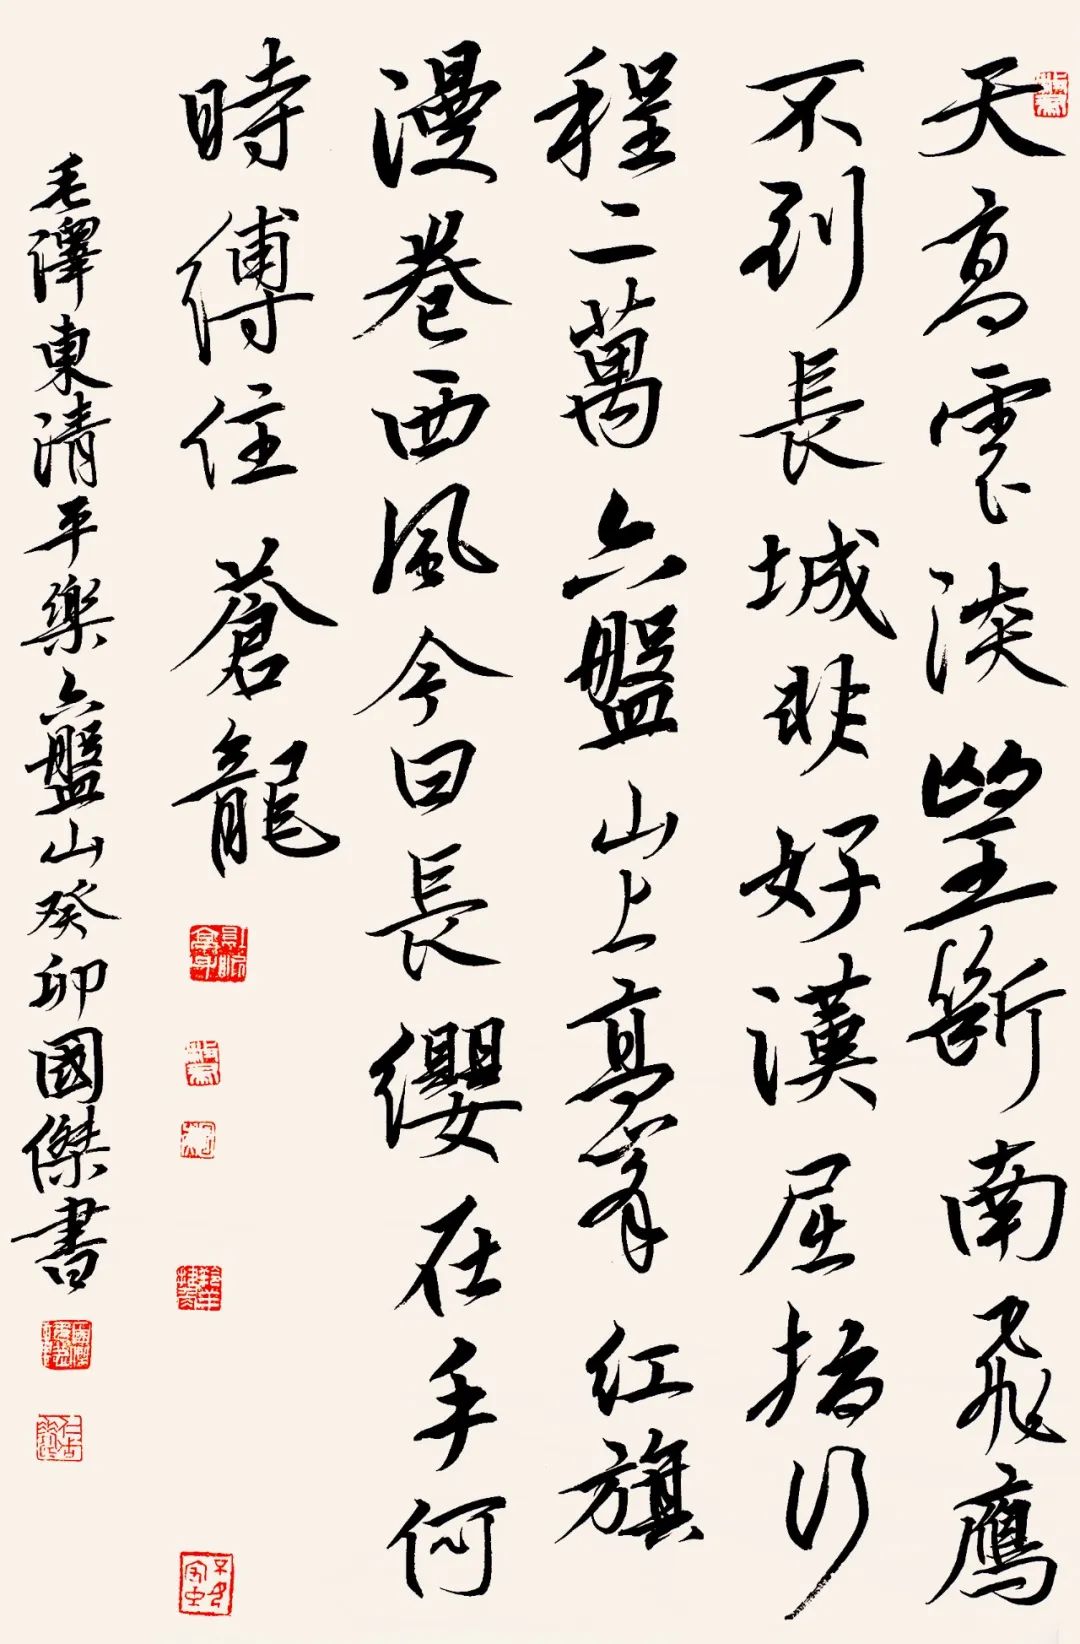 天高雲淡望斷南飛鷹
不到長城非好漢屈指行
程二萬六盤山上高峯紅旗
漫卷西風今日長纓在手何
時縛住蒼龍
毛澤東清平樂六盤山癸卯國傑書